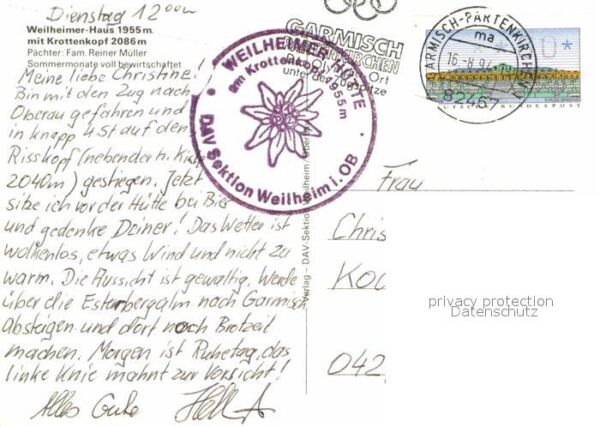 Dienstag 12 00
Weilheimer-Haus 1955m
mit Krottenkopf 2086m
Pächter: Fam. Reiner Müller
Sommermonate voll bewirtschaftet
Meine liebe Christine!
Bin mit dem Zug nach
Oberau gefahren und
in knapp 4 St auf den
Risskopf (neben der h. Kiste
2040m) gestiegen. Jetzt
sitze ich vor der Hütte bei Bier
und gedenke Deiner! Das Wetter ist
wolkenlos, etwas Wind und nicht zu
warm. Die Aussicht ist gewaltig. Werde
über die Esterbergalm nach Garmisch
absteigen und dort noch Brotzeit
machen. Morgen ist Ruhetag, das
linke Knie mahnt zur Vorsicht!
Alles Gute
WEILHEIMER HÜTTE
am Krottenkopf 1955m
DAV Sektion Weilheim i. OB
Verlag - DAV-Sektion Weilheim
GARMISCH
PARTENKIRCHEN
Ort
unter der Zugspitze
GARMISCH-PARTENKIRCHEN
ma
16.-8.94
82467
DEUTSCHE BUNDESPOST
Frau
Chris
Ko
042
privacy protection
Datenschutz